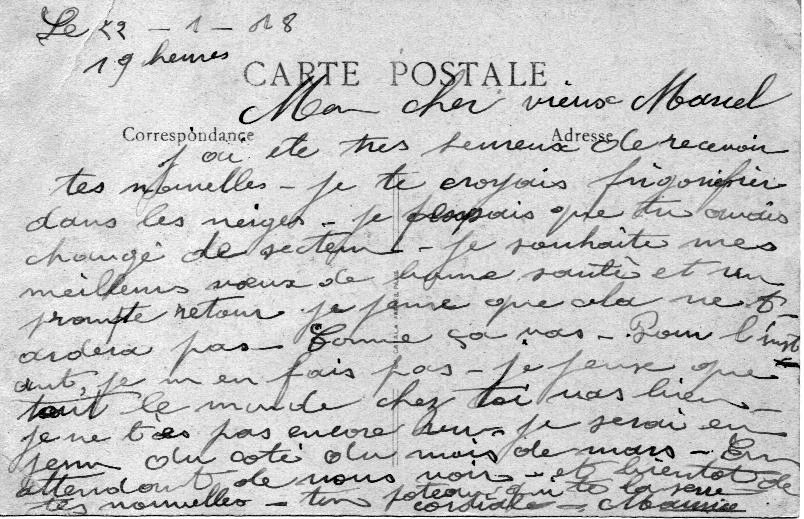 Le 22 - 1 - 18
19 heures
CARTE POSTALE
Mon cher vieux Marcel
Correspondance
Adresse
j'ai ete tres heureux de recevoir
tes nouvelles - je te croyais frigorifier
dans les neiges - je pensais que tu avais
changé de secteur - je souhaite mes
meilleurs voeux de bonne santé et un
prompte retour je pense que cela ne t-
ardera pas - Comme ça vas - Pour l'inst
ant, je m en fais pas - je pense que
tout le monde chez toi vas bien -
je ne t'es pas encore vu - je serai en
perm du coté du mois de mars - En
attendant de nous voir - et bientot de
tes nouvelles - ton poteau qui te la serre
cordiale - Maurice